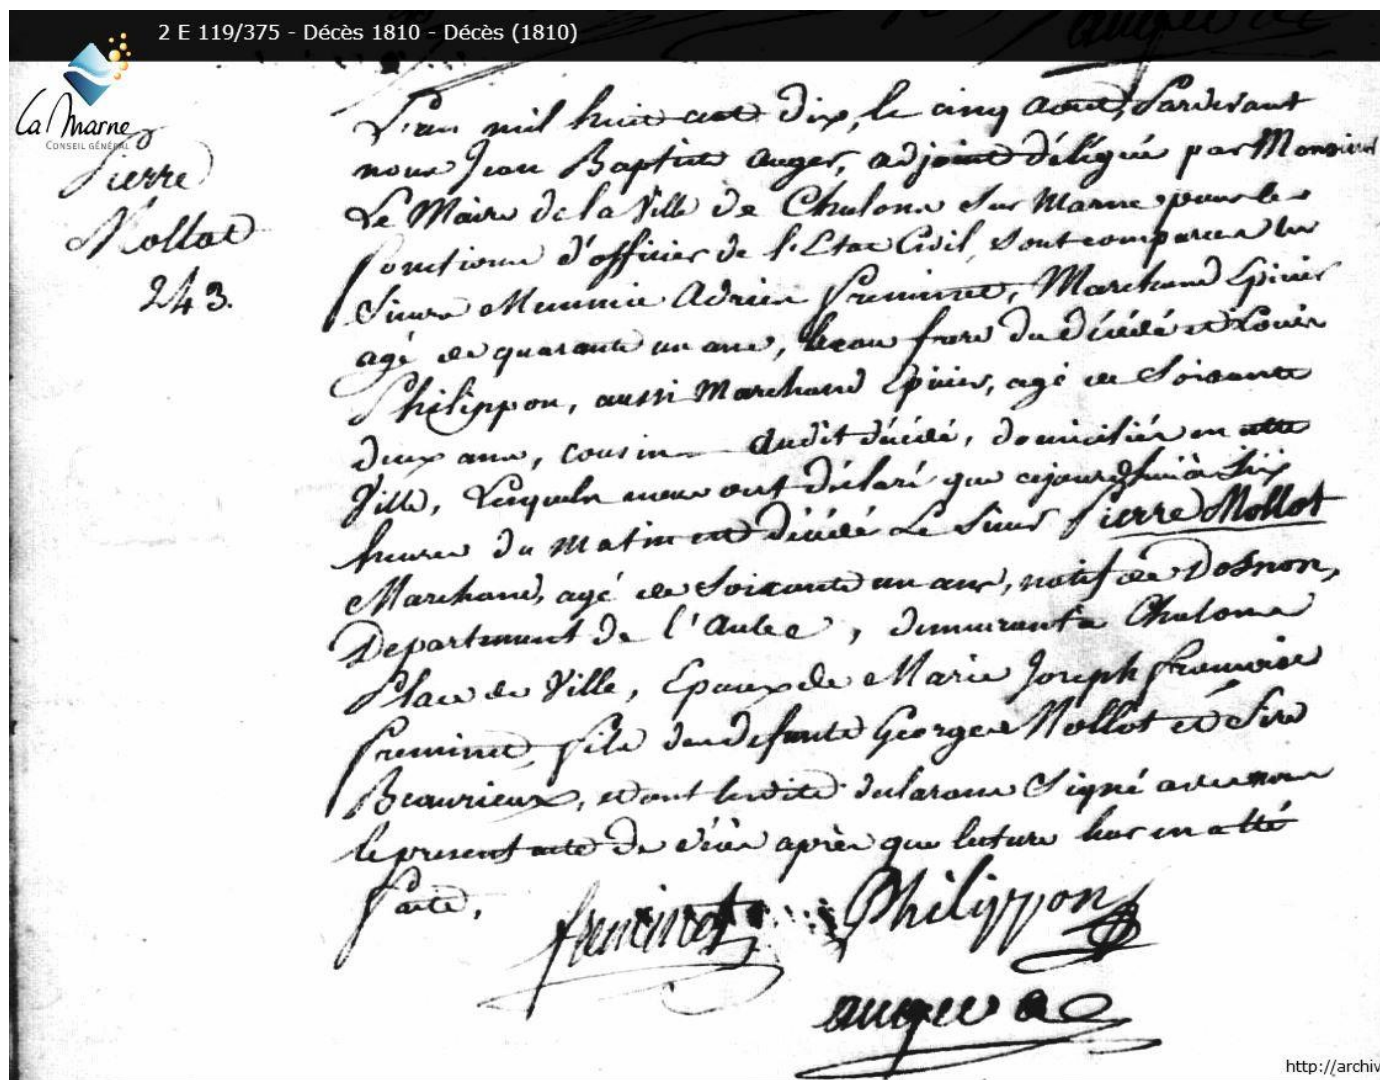 2 E 119/375 - Décès 1810 - Décès (1810)
La Marne
CONSEIL GÉNÉRAL
Pierre
Mollot
243.
L'an mil huit cent dix, le cinq aout, Pardevant
nous Jean Baptiste Auger, adjoint délégué par Monsieur
Le Maire de la Ville de Chalons Sur Marne pour les
fonctions d'officier de l'Etat Civil, Sont comparus les
Sieurs Memmie Adrien freminet, Marchand Epicier
agé de quarante un ans, beau frere du décédé et Louis
Philippon, aussi Marchand Epicier, agé de Soixante
deux ans, cousin dudit décédé, domiciliés en cette
Ville, Lesquels nous ont déclaré que cejourd'hui à Six
heures du matin est décédé Le Sieur Pierre Mollot
Marchand, agé de Soixante un ans, natif de Dosnon,
Departement de l'Aube, demeurant à Chalons
Place de Ville, Epoux de Marie Joseph francoise
freminet, fils des defunts George Mollot et
Beaurieux, et ont lesdits declarans Signé avec nous
le present acte de décès après que lecture leur en a été
faite.
freminet Philippon
auger
http://archiv